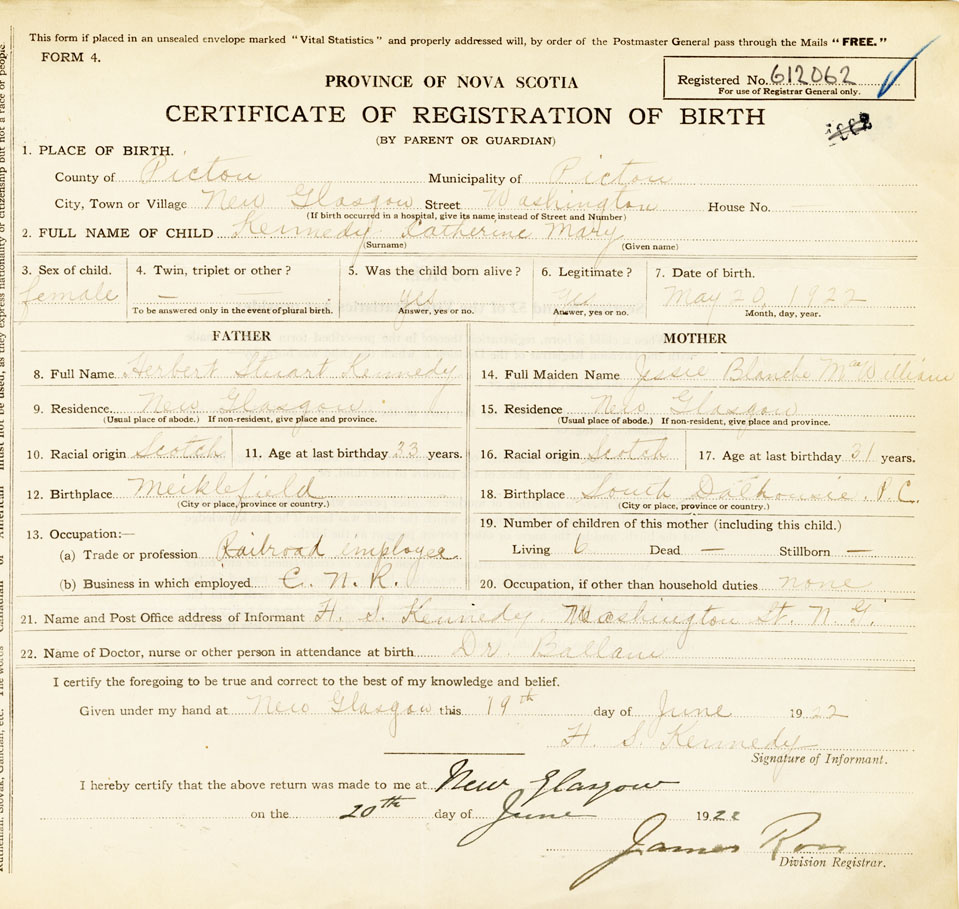 This form if placed in an unsealed envelope marked "Vital Statistics" and properly addressed will, by order of the Postmaster General pass through the Mails "FREE."
FORM 4.
Registered No. 612062
For use of Registrar General only.
PROVINCE OF NOVA SCOTIA
CERTIFICATE OF REGISTRATION OF BIRTH
(BY PARENT OR GUARDIAN)
1. PLACE OF BIRTH.
County of Pictou Municipality of Pictou
City, Town or Village New Glasgow Street Washington House No.
(If birth occurred in a hospital, give its name instead of Street and Number)
2. FULL NAME OF CHILD Kennedy Catherine Mary
(Surname) (Given name)
3. Sex of child. 4. Twin, triplet or other? 5. Was the child born alive? 6. Legitimate? 7. Date of birth.
female — — yes yes May 20, 1922
To be answered only in the event of plural birth. Answer, yes or no. Answer, yes or no. Month, day, year.
FATHER MOTHER
8. Full Name Herbert Stuart Kennedy 14. Full Maiden Name Jessie Blanche MacWilliam
9. Residence New Glasgow 15. Residence New Glasgow
(Usual place of abode.) If non-resident, give place and province. (Usual place of abode.) If non-resident, give place and province.
10. Racial origin Scotch 11. Age at last birthday 33 years. 16. Racial origin Scotch 17. Age at last birthday 31 years.
12. Birthplace Meiklefield 18. Birthplace South Dalhousie. P.C.
(City or place, province or country.) (City or place, province or country.)
13. Occupation:— 19. Number of children of this mother (including this child.)
(a) Trade or profession Railroad employee. Living 6 Dead — Stillborn —
(b) Business in which employed C. N. R. 20. Occupation, if other than household duties none
21. Name and Post Office address of Informant H. S. Kennedy. Washington St. N. G.
22. Name of Doctor, nurse or other person in attendance at birth Dr. Ballam
I certify the foregoing to be true and correct to the best of my knowledge and belief.
Given under my hand at New Glasgow this 19th day of June 1922
H. S. Kennedy
Signature of Informant.
I hereby certify that the above return was made to me at New Glasgow
on the 20th day of June 1922
James Ross
Division Registrar.